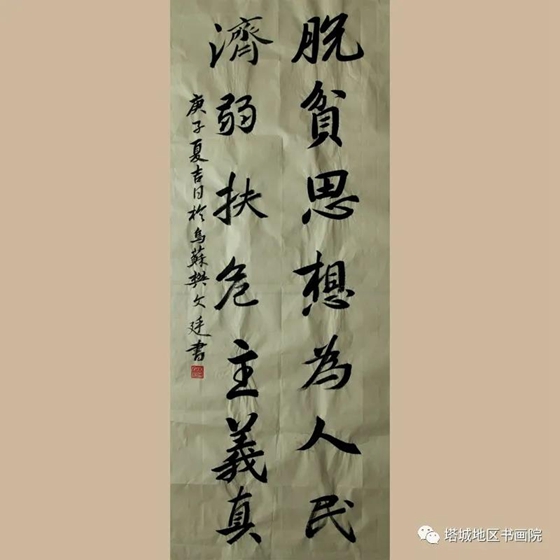 脱貧思想為人民
濟弱扶危主義真
庚子夏吉日於烏蘇樊文廷書
塔城地区书画院